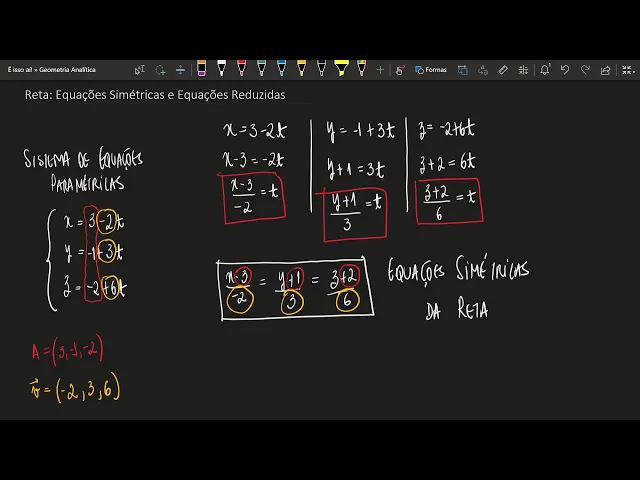 É isso aí! » Geometria Analítica
Formas
Reta: Equações Simétricas e Equações Reduzidas
SISTEMA DE EQUAÇÕES
PARAMÉTRICAS
x = 3 - 2t
y = -1 + 3t
z = -2 + 6t
A = (3, -1, -2)
v⃗ = (-2, 3, 6)
x = 3 - 2t
x - 3 = -2t
(x-3)/-2 = t
y = -1 + 3t
y + 1 = 3t
(y+1)/3 = t
z = -2 + 6t
z + 2 = 6t
(z+2)/6 = t
(x-3)/-2 = (y+1)/3 = (z+2)/6
EQUAÇÕES SIMÉTRICAS
DA RETA